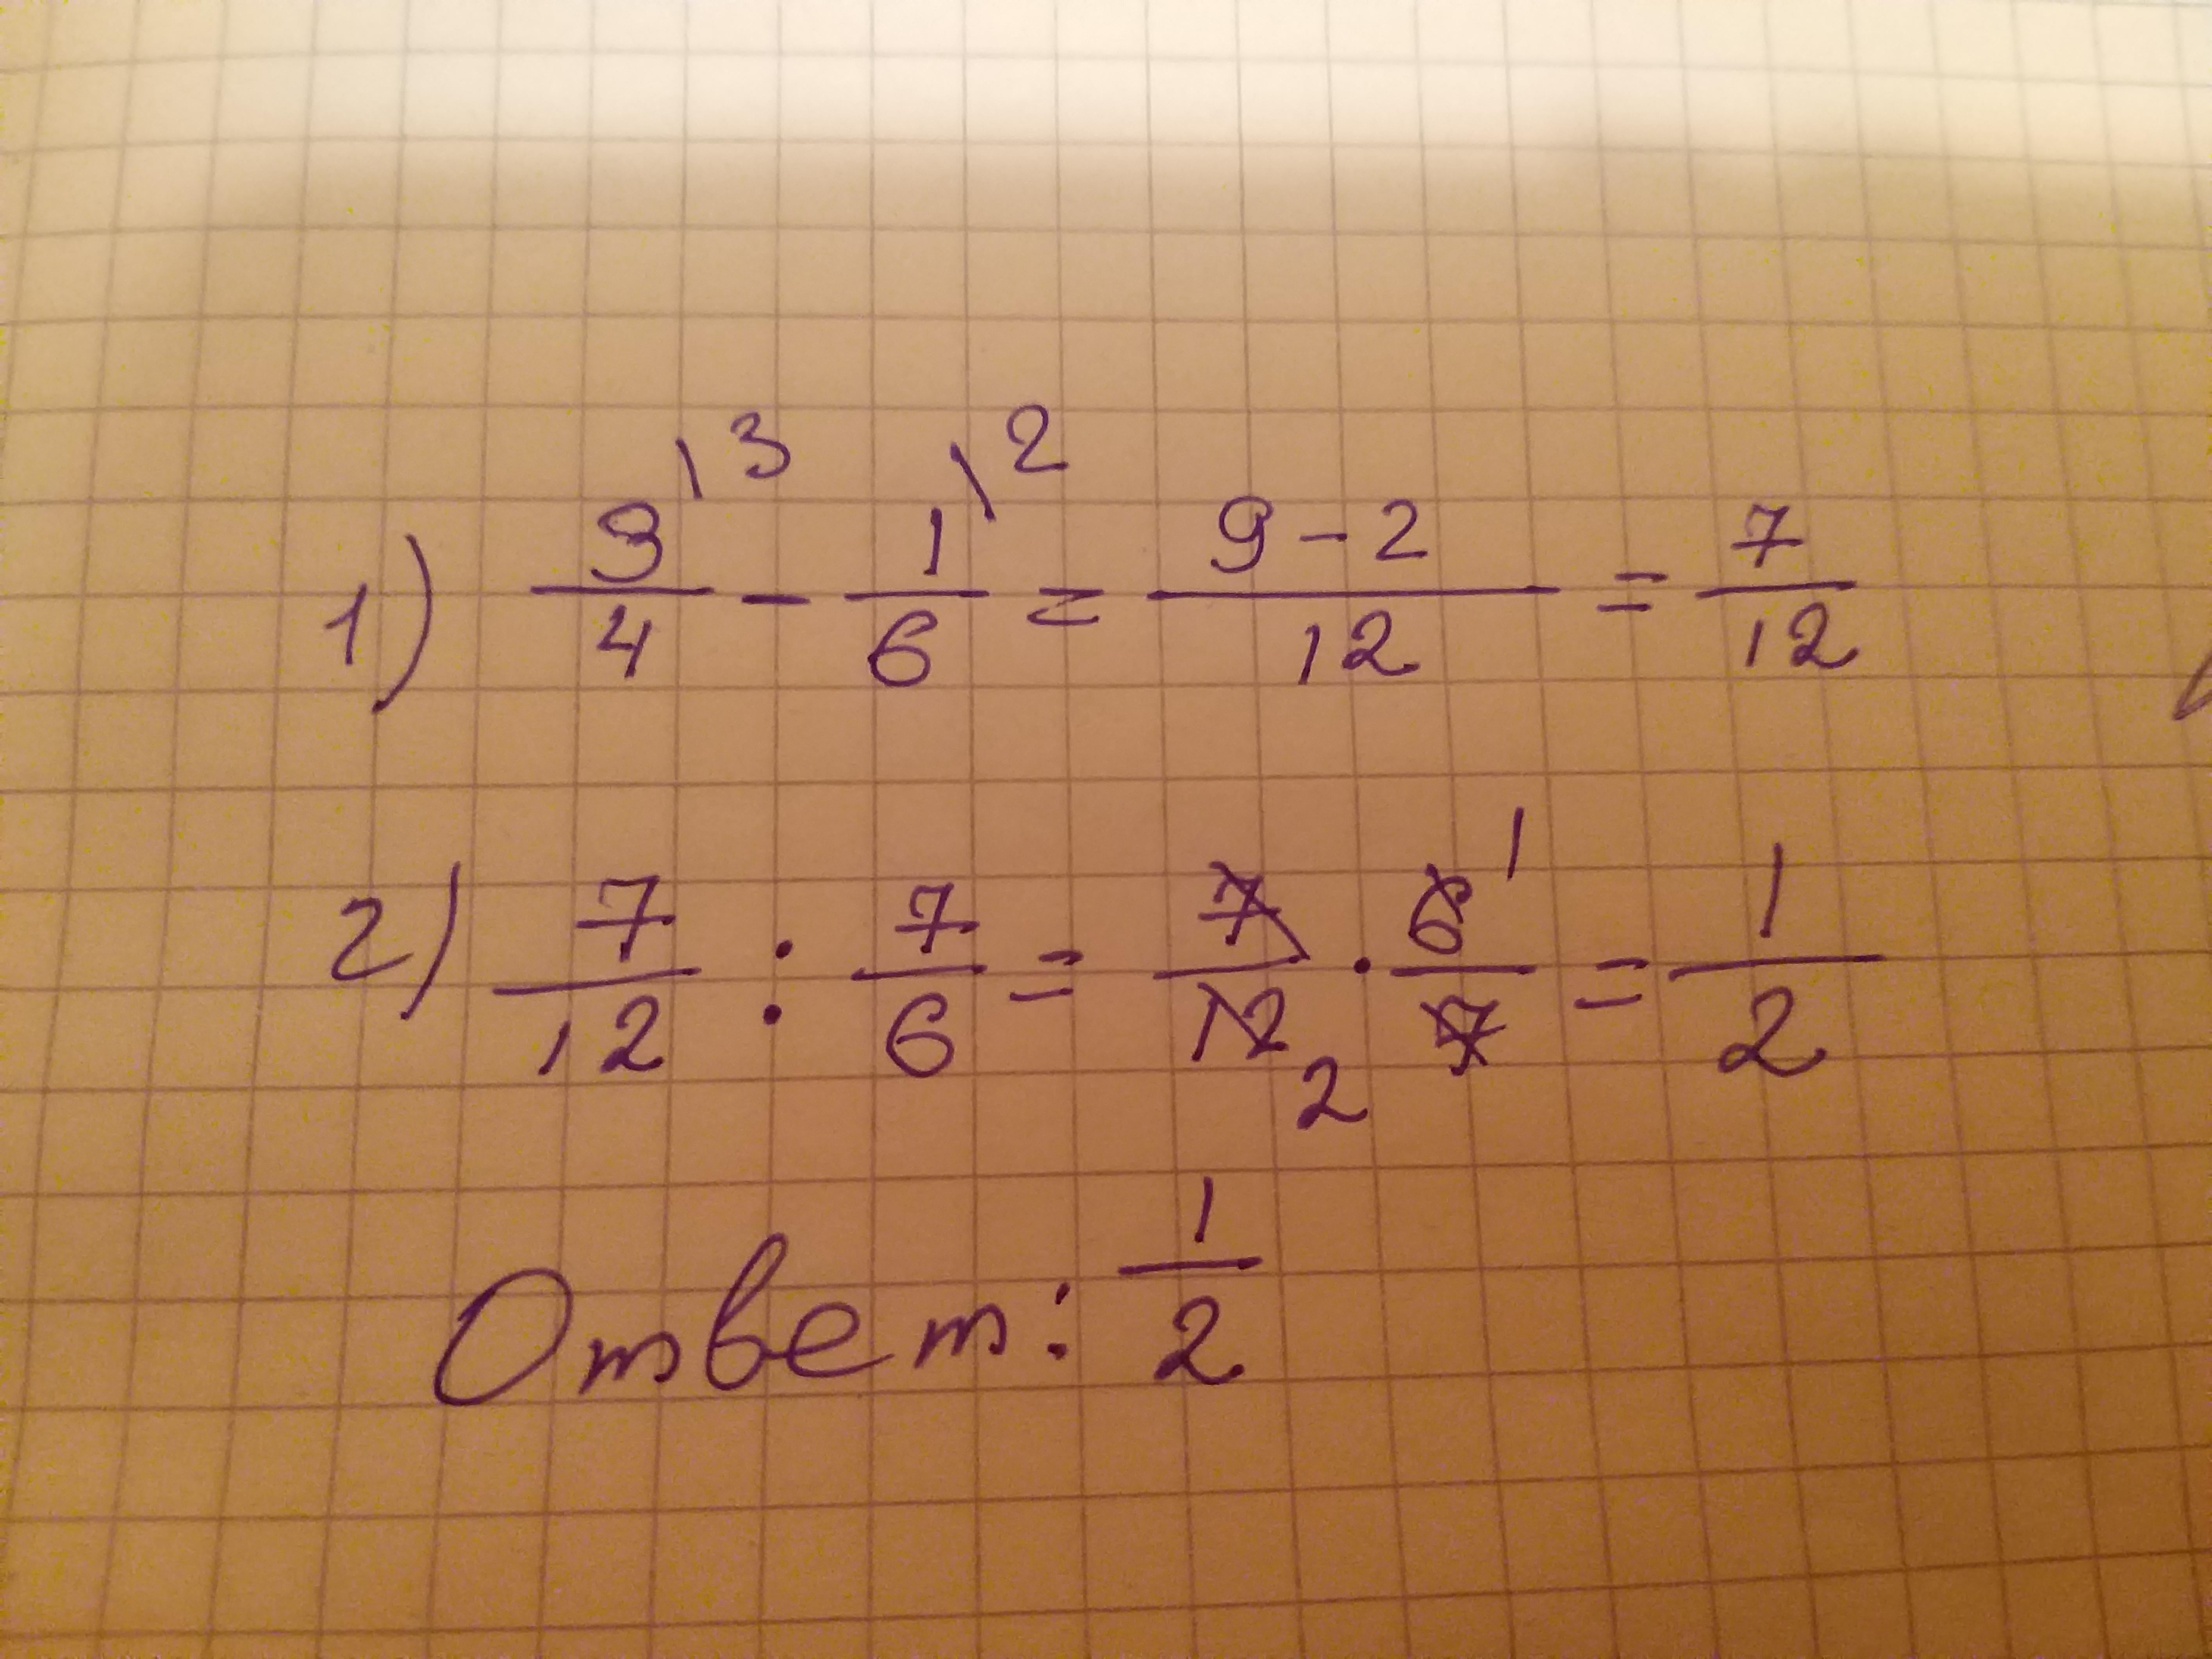 1) 3/4 \3 - 1/6 \2 = 9-2/12 = 7/12
2) 7/12 : 7/6 = 7/12 2 · 6 1/7 = 1/2
Ответ: 1/2